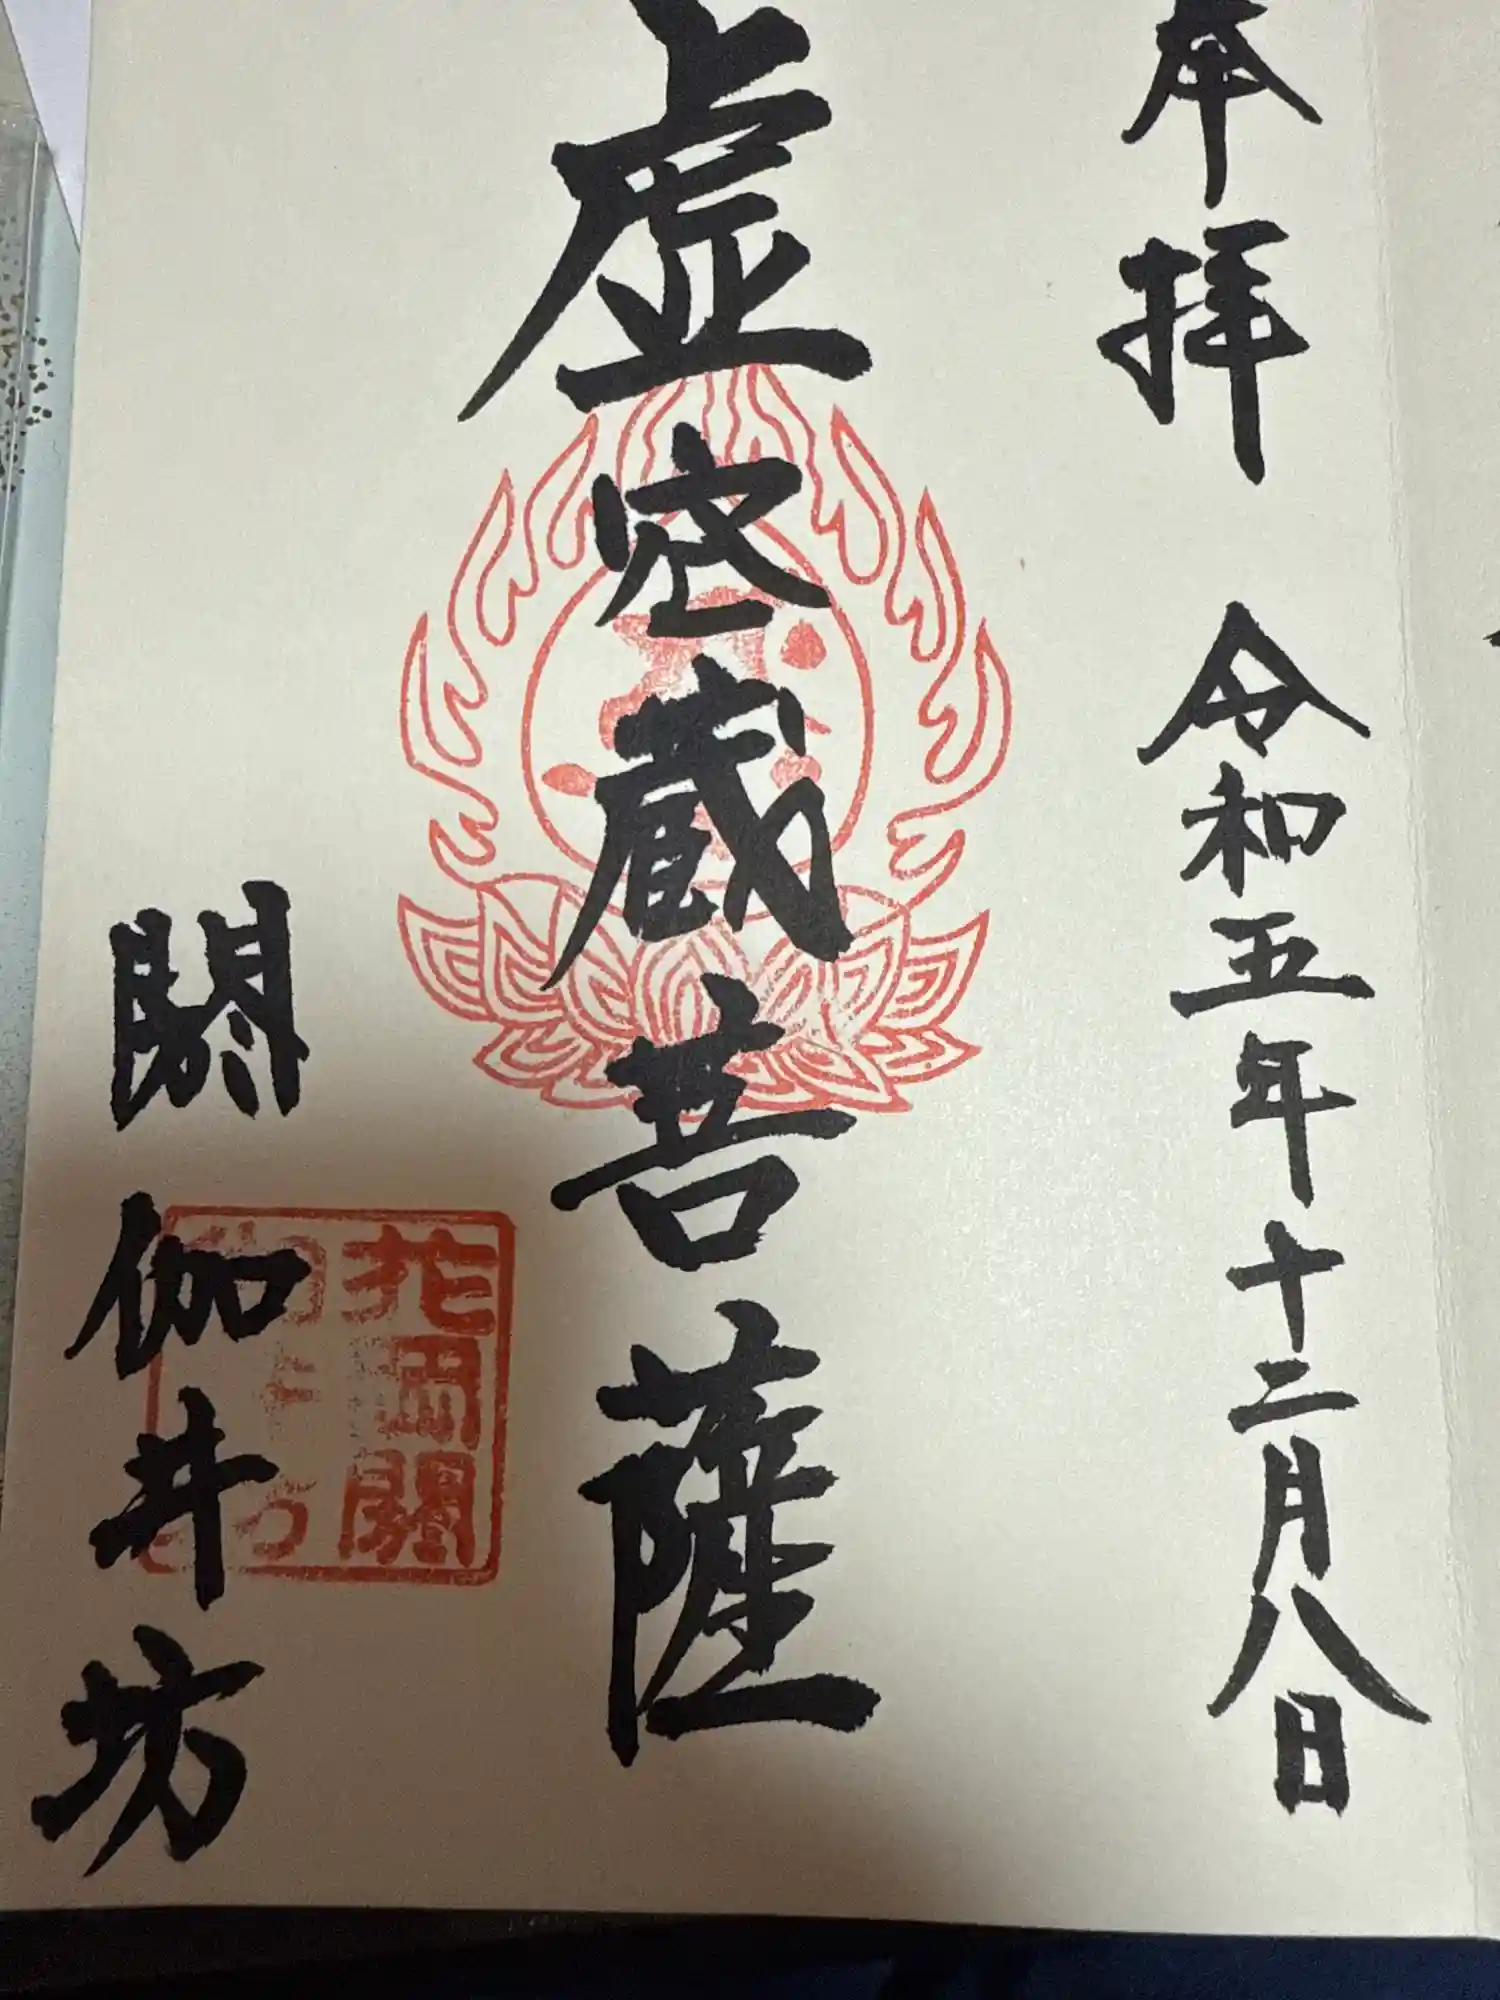 奉拝 令和五年十二月八日
虚空蔵菩薩
閼伽井坊
花岡閼